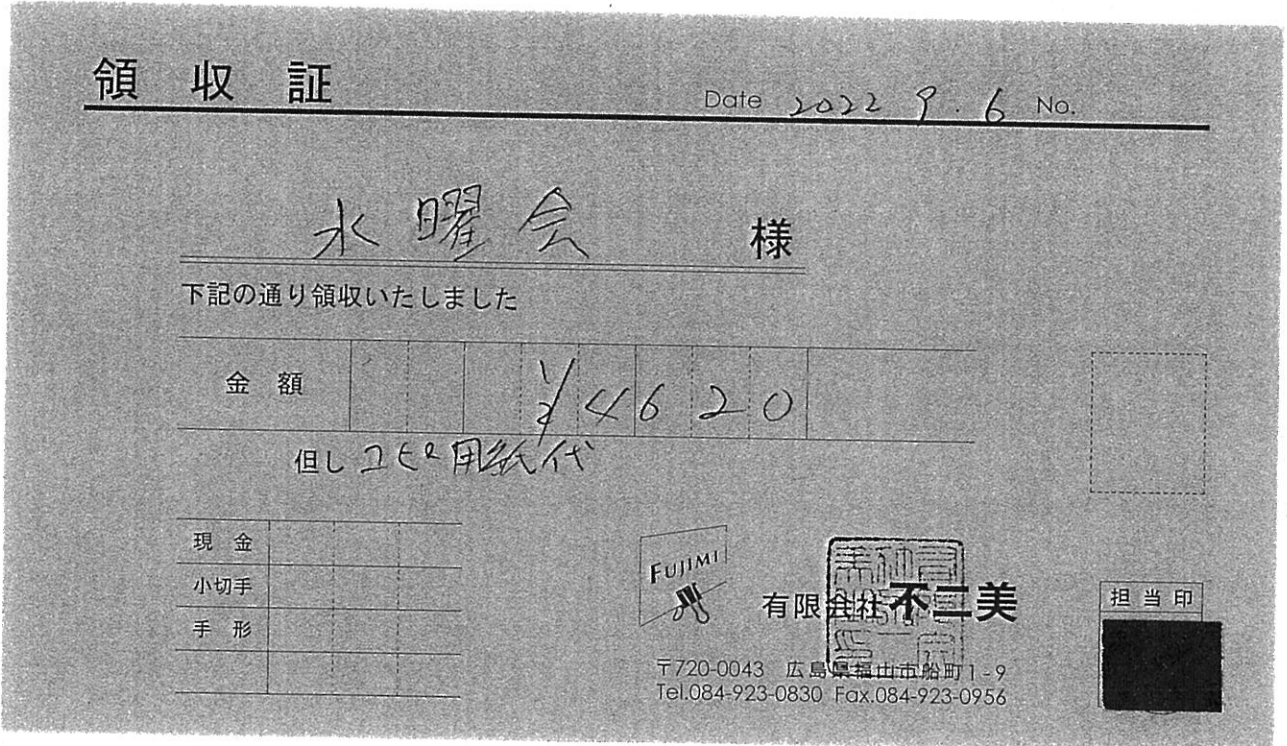 領収証
Date 2022 9.6 No.
水曜会 様
下記の通り領収いたしました
金額 ¥4620
但し コピー用紙代
現金
小切手
手形
FUJIMI
有限会社不二美
〒720-0043 広島県福山市船町1-9
Tel.084-923-0830 Fax.084-923-0956
担当印